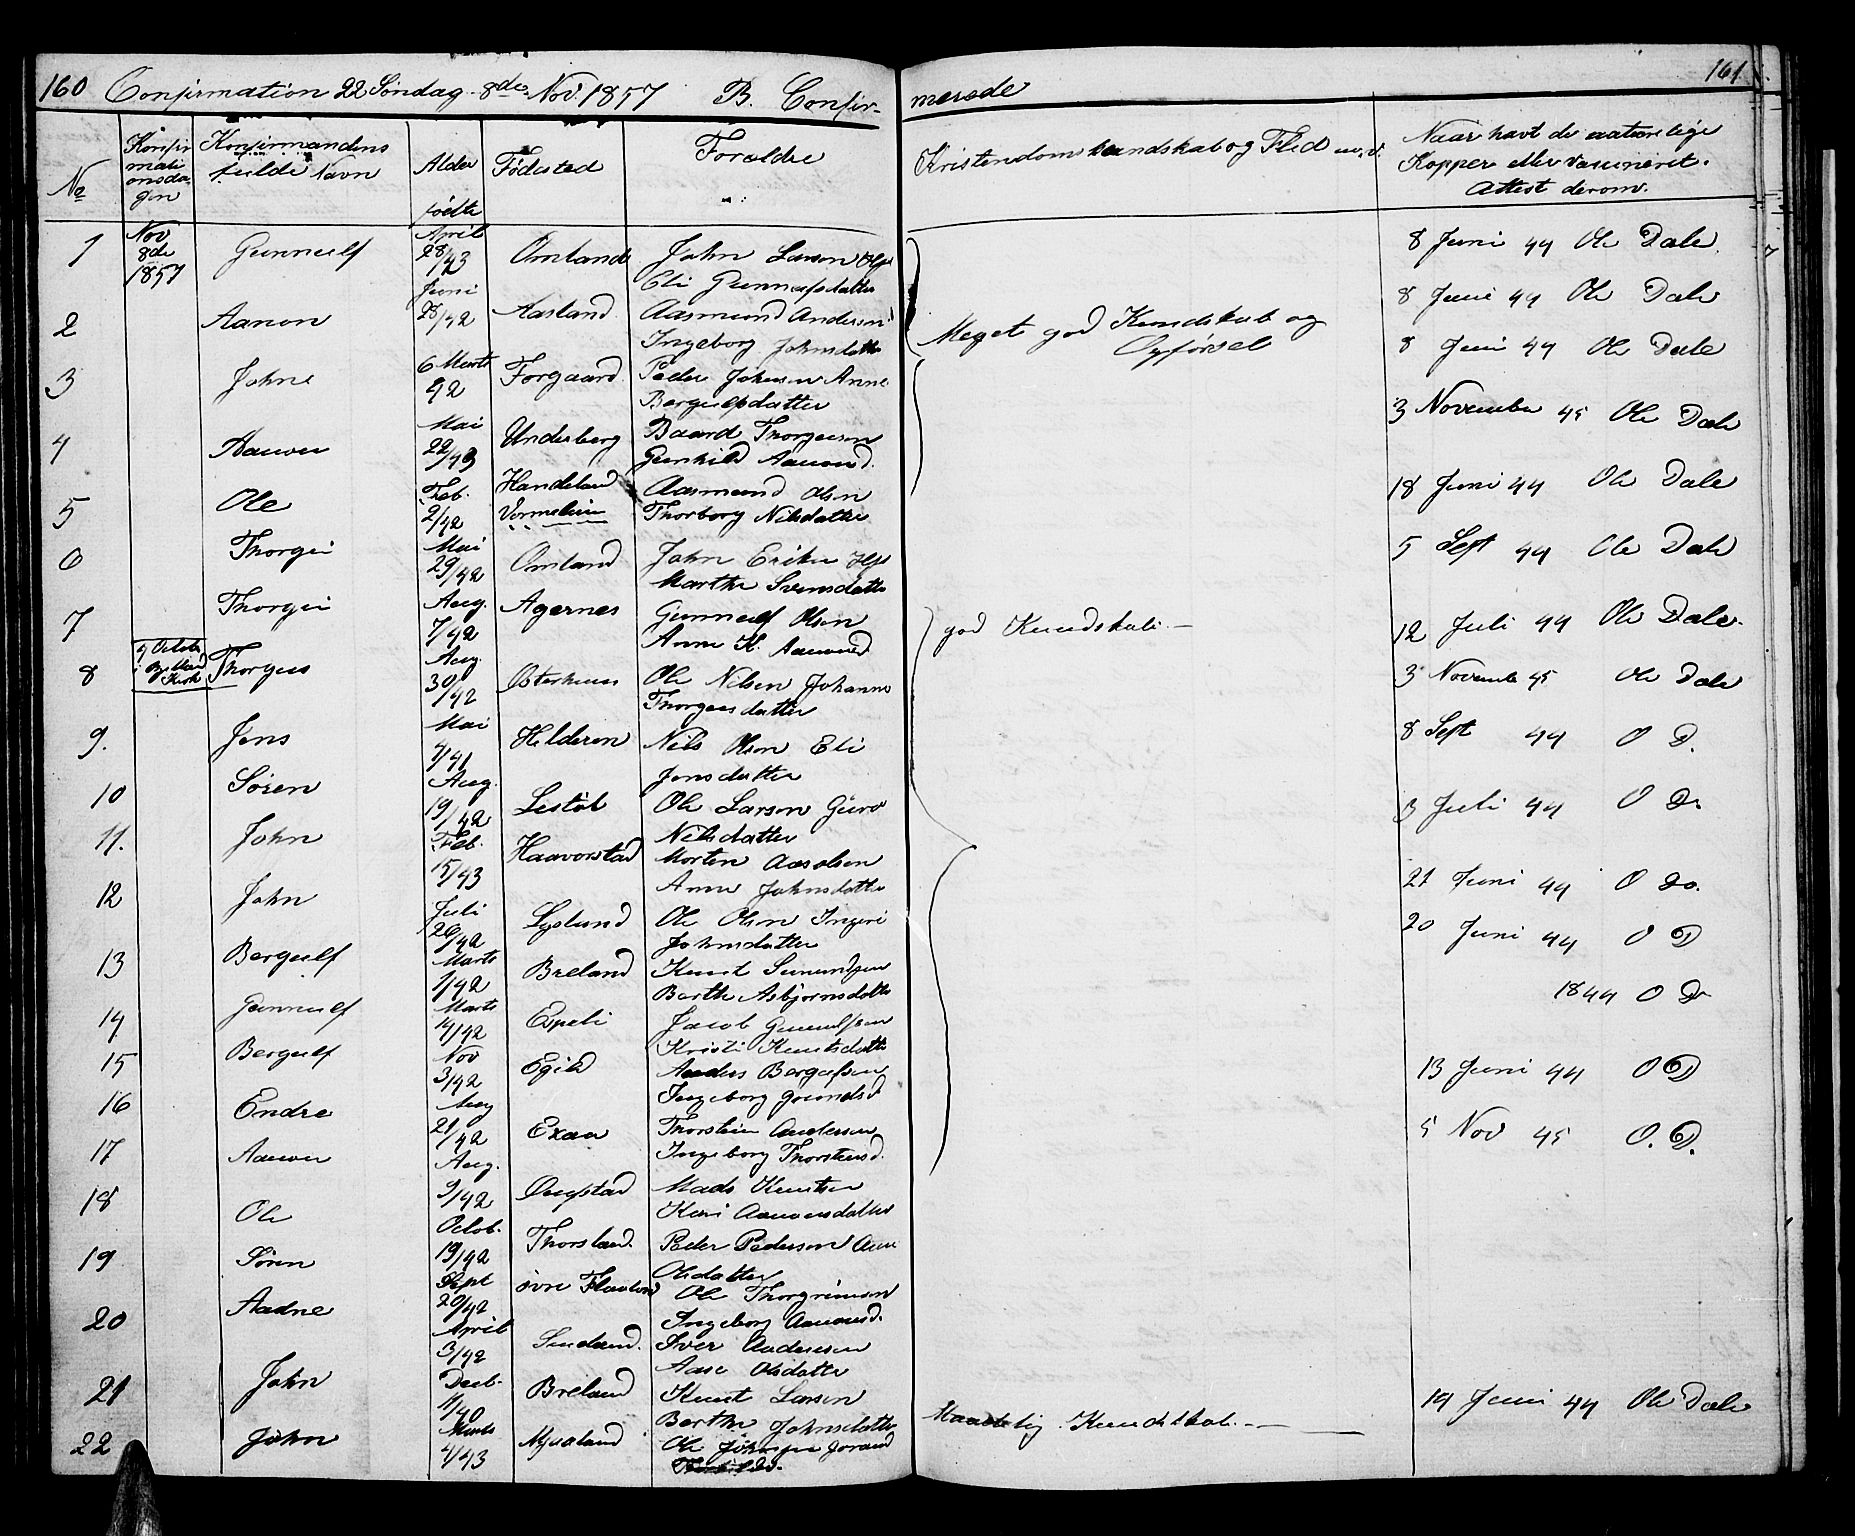 160 Confirmation 22 Søndag 8de Nov. 1857 B. Confir-
merede
161
No
Konfir
mati
onsda-
gen
Konfirmandens
fulde Navn
Alder
fødte
Fødested
Forældre
Kristendomskundskab og Flid m.v.
Naar havt de naturelige
Kopper eller vaxineret.
Attest derom.
1 Nov 8de 1857 Gunnulf April 28/43 Omland John Larsen
Eli Gunnulfsdatter
8 Juni 44 Ole Dale
2 Aanon Juni 28/42 Aasland Aasmund Andersen
Ingeborg Johnsdatter
8 Juni 44 Ole Dale
Meget god Kundskab og
Opførsel
3 John 6 Marts 42 Forgaard Peder Johnsen Anne
Bergulfsdatter
8 Juni 44 Ole Dale
4 Aanon Mai 22/43 Underberg Baard Thorgersen
Gunhild Aanond.
3 November 45 Ole Dale
5 Ole Feb. 2/42 Handeland Aasmund Olsen
Thorborg Nilsdatter
18 Juni 44 Ole Dale
6 Thorger Mai 29/42 Omland John Eriksen
Marthe Svensdatter
5 Sept 44 Ole Dale
7 Thorger Aug. 7/42 Agernes Gunnulf Olsen
Anne K. Aanond
god Kundskab. —
12 Juli 44 Ole Dale.
8 4 Octob. Kirke Thorger Aug. 30/42 Osterhus Ole Nilsen Johanne
Thorgersdatter
3 November 45 Ole Dale
9. Jens Mai 4/41 Hilderen Nils Olsen Eli
Jensdatter
8 Sept 44 O D.
10 Søren Aug. 19/42 Lestøl Ole Larsen Guro
Nilsdatter
3 Juli 44 O D.
11. John Feb. 15/43 Haavorstad Morten Aasolsen
Anne Johnsdatter
21 Juni 44 O Do.
12 John Juli 26/42 Lyslund Ole Olsen Ingeri
Johnsdatter
20 Juni 44 O D
13 Bergulf Marts 1/42 Breland Knut
Berthe Asbjørnsdatter
1844 O D
14 Gunnulf Marts 14/42 Espeli Jacob Gunnulfsen
Kristi Knutsdatter
15 Bergulf Nov 3/42 Egild Anders Bergulfsen
Ingeborg
13 Juni 44 O D
16 Endre Aug 21/42 Exaa Thorstein Andersen
Ingeborg Thorstensd.
5 Nov 45 O. D.
17 Aanon Aug. 9/42 Øugstad Mads Knutsen
Kari Aanonsdatter
18 Ole Octob. 19/42 Thorsland Peder Pedersen Anne
Olsdatter
19 Søren Sept 20/42 øvre Ole Thorgrimsen
Ingeborg Aanonsd.
20 Aadne April 3/42 Iver Andersen
Aase Olsdatter
21 John Deeb. 1/40 Breland Knut Larsen
Berthe Johnsdatter
Maadelig Kundskab. —
19 Juni 44 Ole Dale
22 John Marts 4/43 Mjualand Ole Johnsen